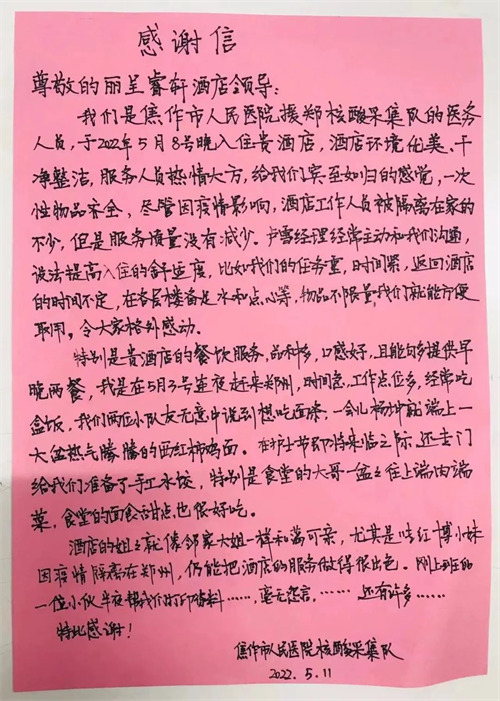 感谢信
尊敬的丽呈睿轩酒店领导：
我们是焦作市人民医院援郑核酸采集队的医务
人员，于2022年5月8号晚入住贵酒店，酒店环境优美、干
净整洁，服务人员热情大方，给我们宾至如归的感觉，一次
性物品齐全，尽管因疫情影响，酒店工作人员被隔离在家的
不少，但是服务质量没有减少。卢雪经理经常主动和我们沟通，
设法提高入住的舒适度，比如我们的任务重，时间紧，返回酒店
的时间不定，在各层楼备足水和点心等，物品不限量，我们就能方便
取用，令大家格外感动。
特别是贵酒店的餐饮服务，品种多，口感好，且能够多提供早
晚两餐，我是在5月3号连夜赶来郑州，时间急，工作点位多，经常吃
盒饭，我们两位小队友无意中说到想吃面条，一会儿杨师傅端上一
大盆热气腾腾的西红柿鸡面。在护士节即将来临之际，还专门
给我们准备了手工水饺，特别是食堂的大哥一盆之往上端肉端
菜，食堂的面食甜点也很好吃。
酒店的姐之就像邻家大姐一样和蔼可亲，尤其是红博小妹
因疫情隔离在郑州，仍能把酒店的服务做得很出色。刚上班的
一位小伙半夜帮我们打印资料……毫无怨言，……还有许多……
特此感谢！
焦作市人民医院核酸采集队
2022.5.11